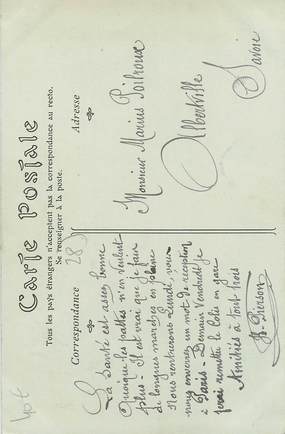 Carte Postale
Tous les pays étrangers n'acceptent pas la correspondance au recto.
Se renseigner à la poste.
Correspondance
La Santé est assez bonne
Quoique les pattes n'en veulent
plus - Il est vrai que je fais
de longues marches en plaine
Nous rentrerons Lundi, vous
nous enverrez un mot de réception
à Paris - Demain Vendredi je
ferai remettre le Colis en gare
Amitiés à tout trois
Pierson
Adresse
Monsieur Marius Poilroux
Albertville
Savoie